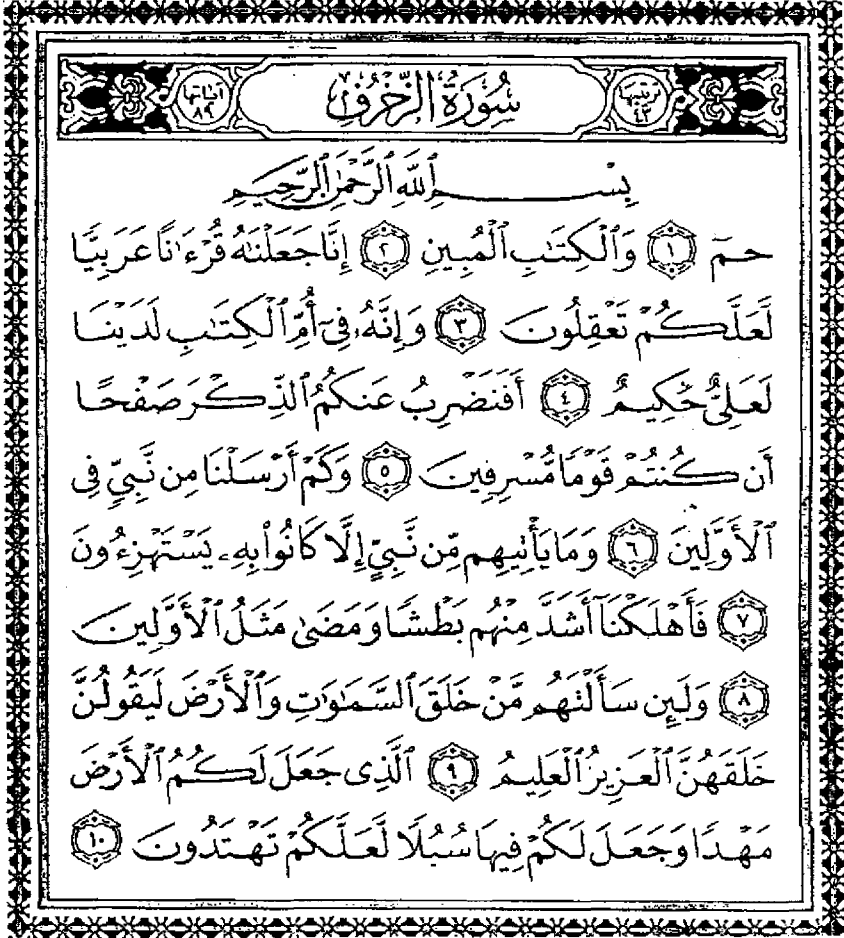 ترتيبها ٤٣
سُورَةُ الزُّخْرُفِ
آياتها ٨٩
بِسْمِ ٱللَّهِ ٱلرَّحْمَٰنِ ٱلرَّحِيمِ
حمٓ ١ وَٱلْكِتَٰبِ ٱلْمُبِينِ ٢ إِنَّا جَعَلْنَٰهُ قُرْءَٰنًا عَرَبِيًّا
لَّعَلَّكُمْ تَعْقِلُونَ ٣ وَإِنَّهُۥ فِىٓ أُمِّ ٱلْكِتَٰبِ لَدَيْنَا
لَعَلِىٌّ حَكِيمٌ ٤ أَفَنَضْرِبُ عَنكُمُ ٱلذِّكْرَ صَفْحًا
أَن كُنتُمْ قَوْمًا مُّسْرِفِينَ ٥ وَكَمْ أَرْسَلْنَا مِن نَّبِىٍّ فِى
ٱلْأَوَّلِينَ ٦ وَمَا يَأْتِيهِم مِّن نَّبِىٍّ إِلَّا كَانُوا۟ بِهِۦ يَسْتَهْزِءُونَ
٧ فَأَهْلَكْنَآ أَشَدَّ مِنْهُم بَطْشًا وَمَضَىٰ مَثَلُ ٱلْأَوَّلِينَ
٨ وَلَئِن سَأَلْتَهُم مَّنْ خَلَقَ ٱلسَّمَٰوَٰتِ وَٱلْأَرْضَ لَيَقُولُنَّ
خَلَقَهُنَّ ٱلْعَزِيزُ ٱلْعَلِيمُ ٩ ٱلَّذِى جَعَلَ لَكُمُ ٱلْأَرْضَ
مَهْدًا وَجَعَلَ لَكُمْ فِيهَا سُبُلًا لَّعَلَّكُمْ تَهْتَدُونَ ١٠